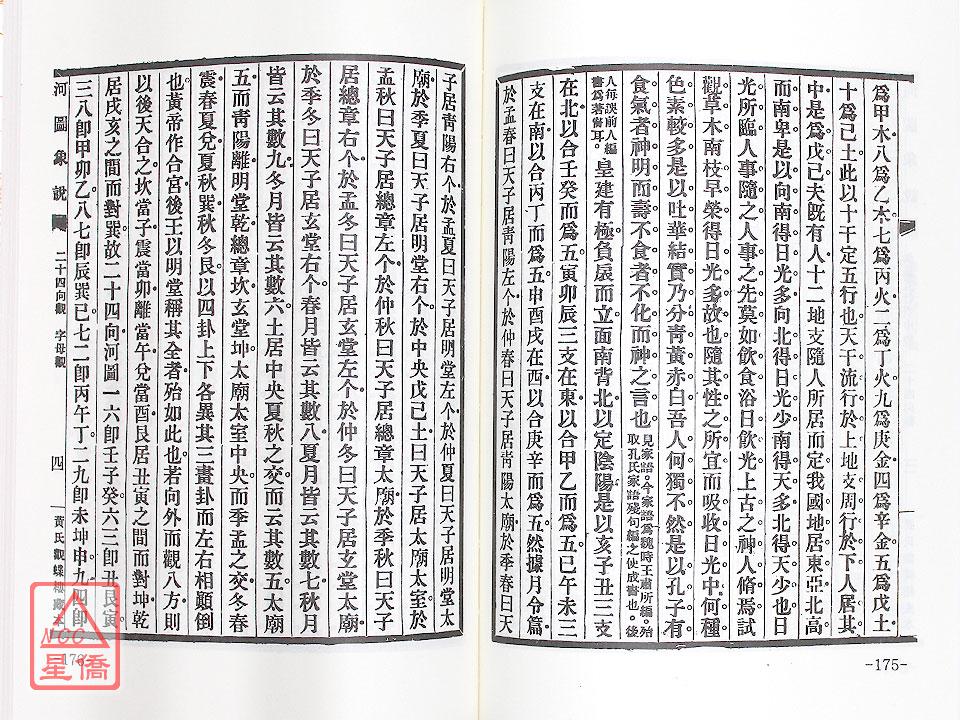 爲甲木八爲乙木七爲丙火二爲丁火九爲庚金四爲辛金五爲戊土
十爲己土此以十干定五行也天干流行於上地支周行於下人居其
中是爲戊己夫既有人十二地支隨人所居而定我國地居東亞北高
而南卑是以向南得日光多向北得日光少南得天多北得天少也
光所臨人事隨之人事之先莫如飲食浴日飲光上古之神人脩焉試
觀草木南枝早榮得日光多故也隨其性之所宜而吸收日光中何種
色素較多是以吐華結實乃分靑黃赤白吾人何獨不然是以孔子有
食氣者神明而壽不食者不化而神之言也見家語今家語爲魏時王肅所編殆取孔氏家語殘句編之使成書也後
人每誤前人編書爲著書耳皇建有極負扆而立面南背北以定陰陽是以亥子丑三支
在北以合壬癸而爲五寅卯辰三支在東以合甲乙而爲五巳午未三
支在南以合丙丁而爲五申酉戌在西以合庚辛而爲五然據月令篇
於孟春曰天子居靑陽左个於仲春曰天子居靑陽太廟於季春曰天
-175-
子居靑陽右个於孟夏曰天子居明堂左个於仲夏曰天子居明堂太
廟於季夏曰天子居明堂右个於中央戊己土曰天子居太廟太室於
孟秋曰天子居總章左个於仲秋曰天子居總章太廟於季秋曰天子
居總章右个於孟冬曰天子居玄堂左个於仲冬曰天子居玄堂太廟
於季冬曰天子居玄堂右个春月皆云其數八夏月皆云其數七秋月
皆云其數九冬月皆云其數六土居中央夏秋之交而云其數五太廟
五而靑陽離明堂乾總章坎玄堂坤太廟太室中央而季孟之交冬春
震春夏兌夏秋巽秋冬艮以四卦上下各異其三畫卦而左右相顚倒
也黃帝作合宮後王以明堂稱其全者殆如此也若向外而觀八方則
以後天合之坎當子震當卯離當午兌當酉艮居丑寅之間而對坤乾
居戌亥之間而對巽故二十四向河圖一六卽壬子癸六三卽丑艮寅
三八卽甲卯乙八七卽辰巽巳七二卽丙午丁二九卽未坤申九四卽
河圖象說
二十四向觀 字母觀
四
黃氏觀蝶樓藏本
NCC
星僑